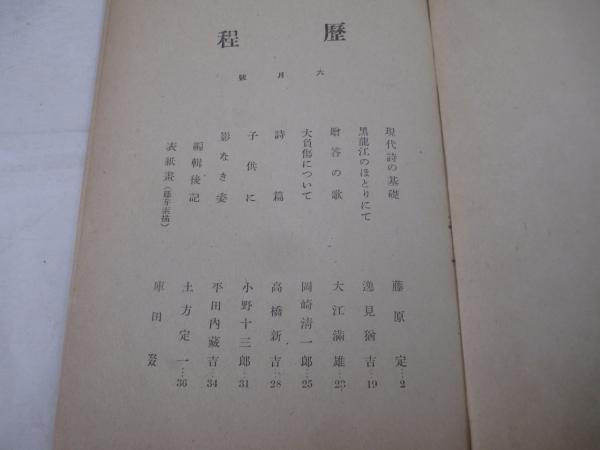 歴程
六月號
現代詩の基礎 藤原定…2
黒龍江のほとりにて 逸見猶吉…19
贈答の歌 大江滿雄…23
大負傷について 岡崎清一郎…25
詩篇 高橋新吉…28
子供に 小野十三郎…31
影なき妾 平田內藏吉…34
編輯後記 土方定一…36
表紙畫（藤芽素描） 庫田叕